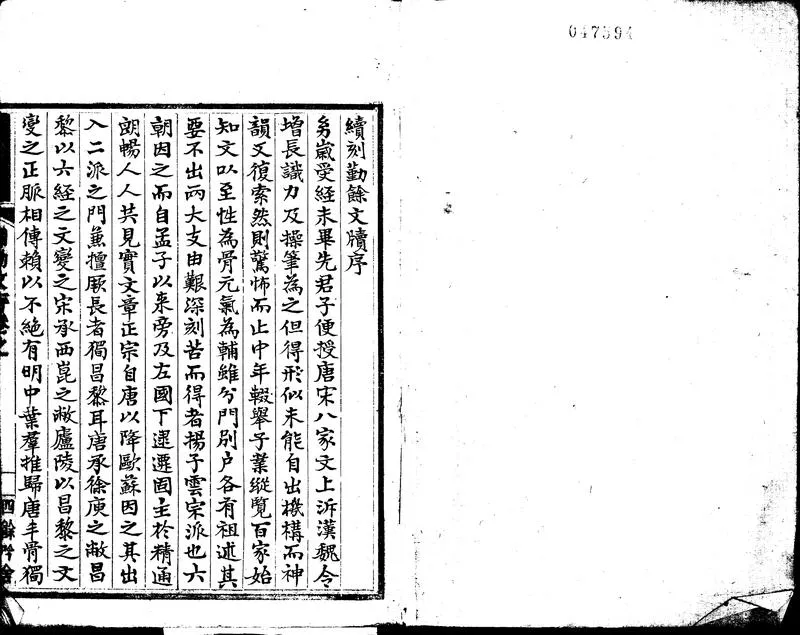 047594
續刻勤餘文牘序
多歲受經未畢先君子便授唐宋八家文上泝漢魏令
增長識力及操筆為之但得形似未能自出機構而神
韻又復索然則驚怖而止中年輟舉子業縱覽百家始
知文以至性為骨元氣為輔雖分門別户各有祖述其
要不出兩大支由艱深刻苦而得者揚子雲宗派也六
朝因之而自孟子以來旁及左國下逮遷固主於精通
朗暢人人共見實文章正宗自唐以降歐蘇因之其出
入二派之門兼擅厥長者獨昌黎耳唐承徐庾之敝昌
黎以六經之文變之宋承西崑之敝廬陵以昌黎之文
變之正脈相傳賴以不絕有明中葉羣推歸唐丰骨獨